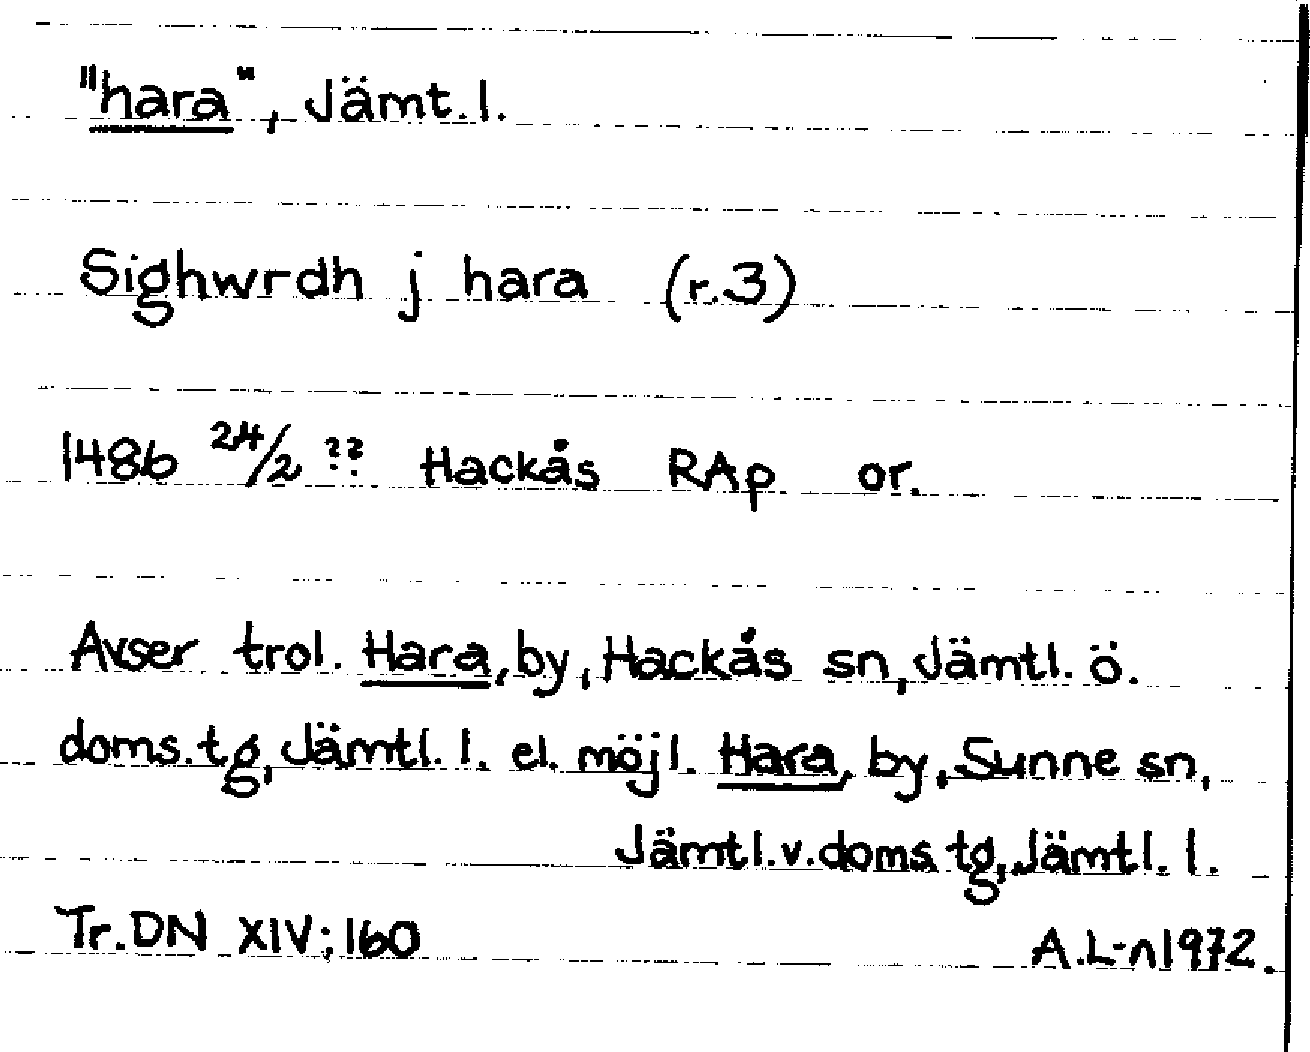 "hara", Jämt. l.
Sighwrdh j hara (r.3)
1486 24/2 ?? Hackås RAp or.
Avser trol. Hara, by, Hackås sn, Jämtl. ö.
doms. tg, Jämtl. l. el. möjl. Hara, by, Sunne sn,
Jämtl. v. doms. tg, Jämtl. l.
Tr. DN XIV; 160 A.L-n 1972.